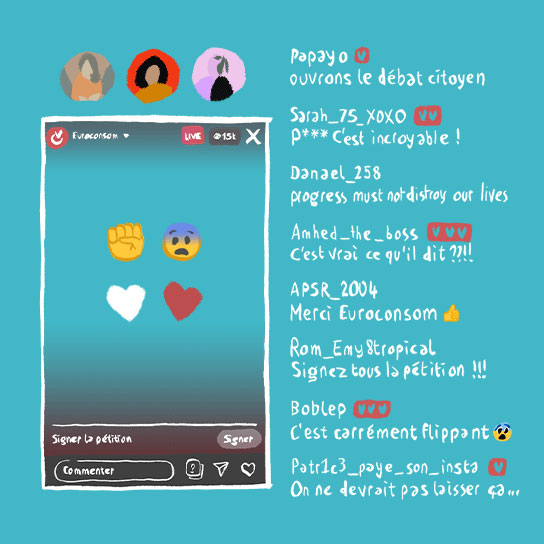 Euroconsom
LIVE
1.5k
Signer la pétition
Signer
Commenter
?
Papayo
ouvrons le débat citoyen
Sarah_75_XOXO
P*** C'est incroyable !
Danael_258
progress must not distroy our lives
Amhed_the_boss
C'est vrai ce qu'il dit ??!!
APSR_2004
Merci Euroconsom
Rom_Emy8tropical
Signez tous la pétition !!!
Boblep
C'est carrément flippant
Patr1c3_paye_son_insta
On ne devrait pas laisser ça...